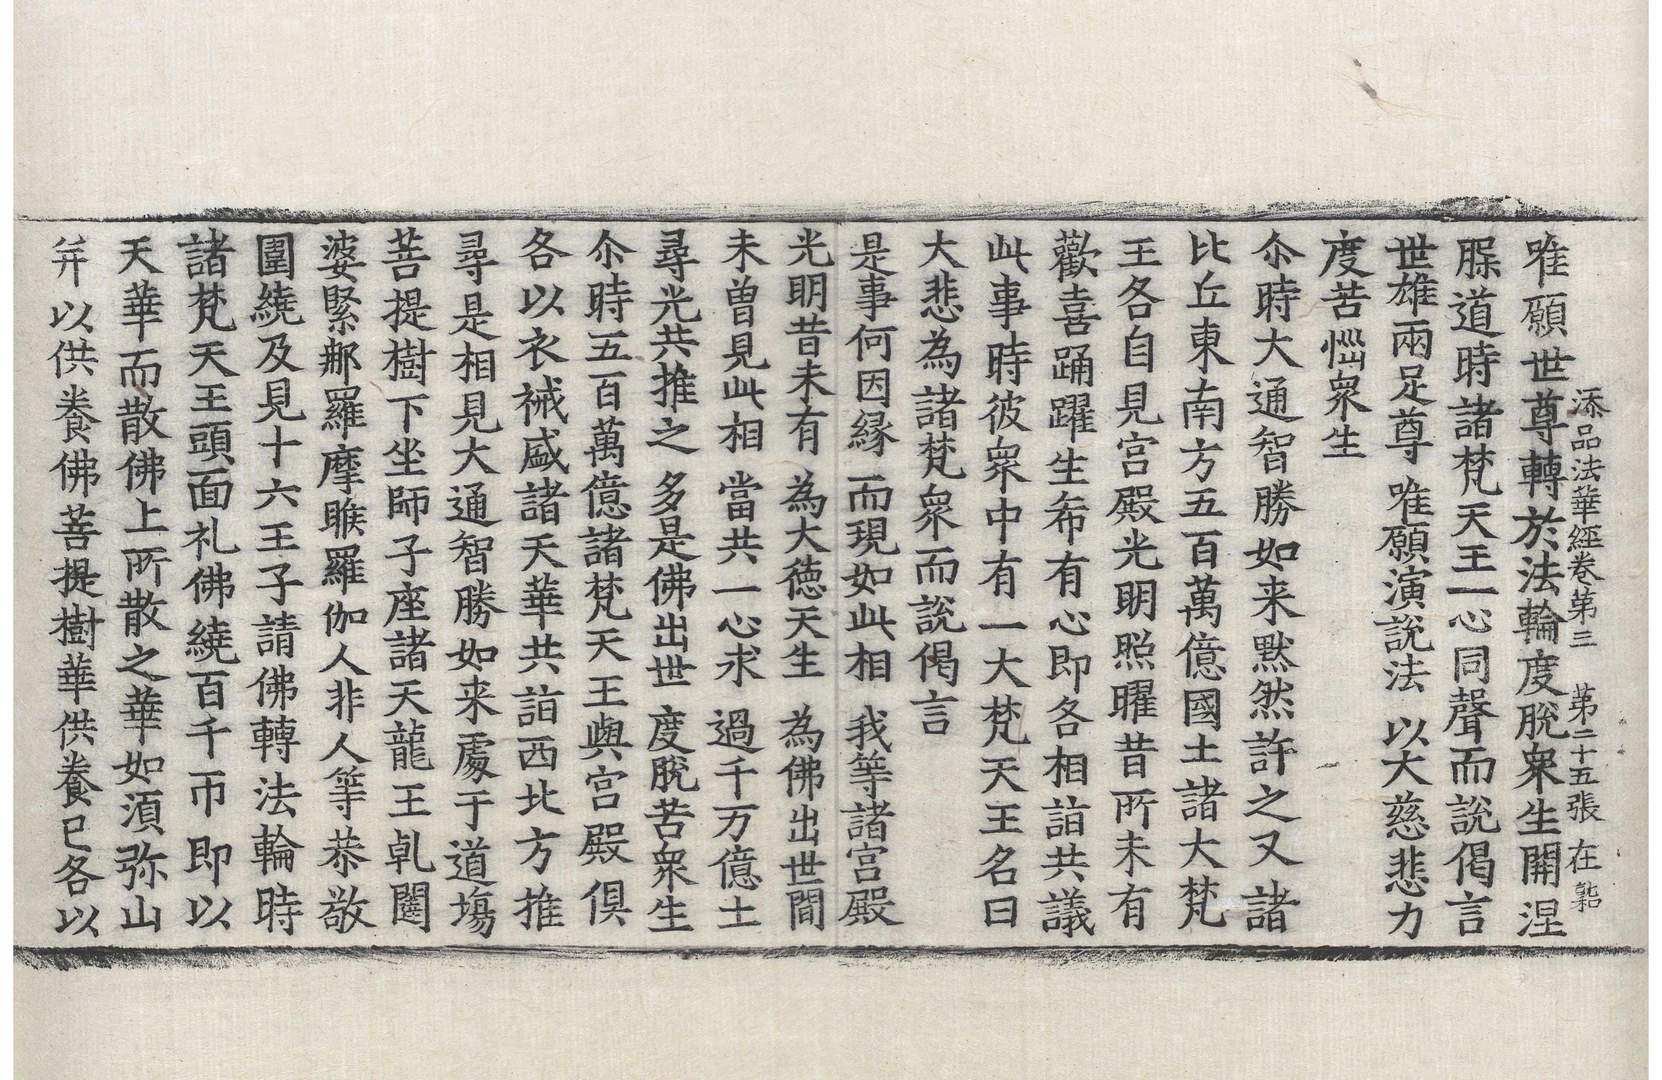 添品法華經卷第三 第二十五張 在
唯願世尊轉於法輪度脫衆生開涅
槃道時諸梵天王一心同聲而說偈言
世雄兩足尊 唯願演說法 以大慈悲力
度苦惱衆生
尒時大通智勝如来黙然許之又諸
比丘東南方五百萬億國土諸大梵
王各自見宮殿光明照曜昔所未有
歡喜踊躍生希有心即各相詣共議
此事時彼衆中有一大梵天王名曰
大悲為諸梵衆而說偈言
是事何因緣 而現如此相 我等諸宮殿
光明昔未有 為大徳天生 為佛出世間
未曽見此相 當共一心求 過千万億土
尋光共推之 多是佛出世 度脫苦衆生
尒時五百萬億諸梵天王與宮殿俱
各以衣裓盛諸天華共詣西北方推
尋是相見大通智勝如来處于道塲
菩提樹下坐師子座諸天龍王乹闥
婆緊郍羅摩睺羅伽人非人等恭敬
圍繞及見十六王子請佛轉法輪時
諸梵天王頭面礼佛繞百千帀即以
天華而散佛上所散之華如湏弥山
并以供養佛菩提樹華供養已各以